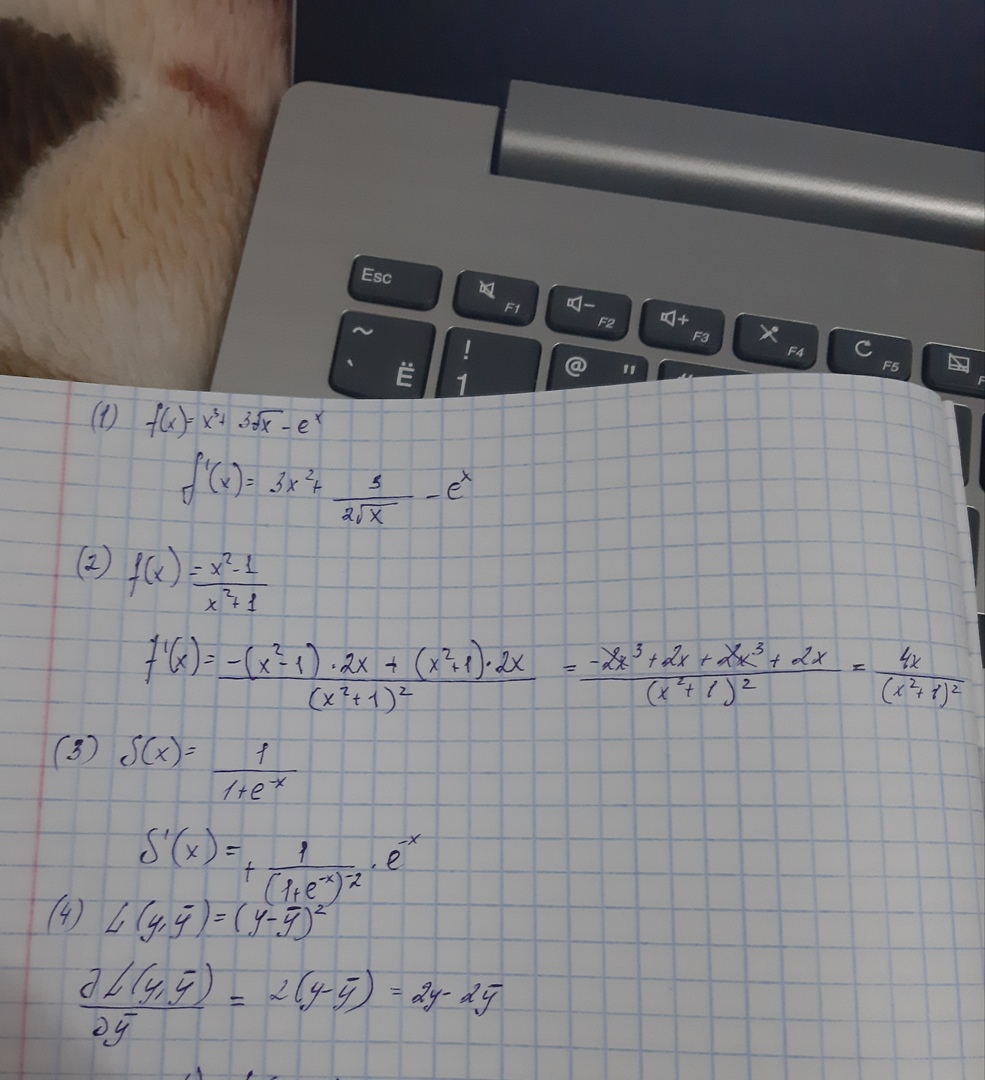 Esc
F1
F2
F3
F4
F5
~
` Ё
!
1
@ "
(1) f(x)= x³+ 3√x - eˣ
f'(x)= 3x²+ 3/(2√x) - eˣ
(2) f(x) = (x²-1)/(x²+1)
f'(x)= (-(x²-1)·2x + (x²+1)·2x)/(x²+1)² = (-2x³+2x+2x³+2x)/(x²+1)² = 4x/(x²+1)²
(3) S(x)= 1/(1+e⁻ˣ)
S'(x)= + 1/(1+e⁻ˣ)⁻² · e⁻ˣ
(4) L(y,ȳ)=(y-ȳ)²
∂L(y,ȳ)/∂ȳ = 2(y-ȳ) = 2y-2ȳ